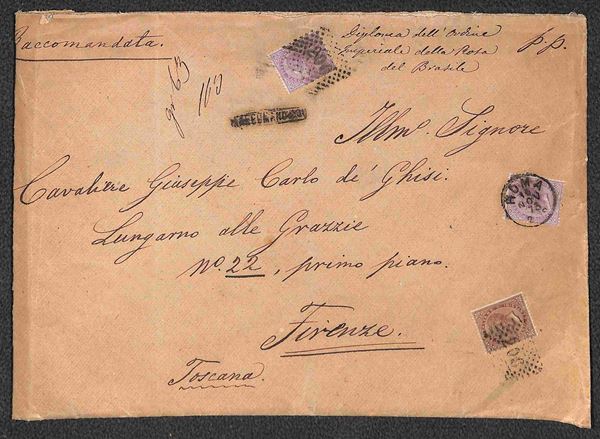 Raccomandata.
Diploma dell' Ordine
Imperiale della Rosa
del Brasile
p.p.
gr 63
RACCOMANDATA
Illmo. Signore
Cavaliere Giuseppe Carlo de' Ghisi.
Lungarno alle Grazzie
No. 22, primo piano.
Firenze.
Toscana.
ROMA